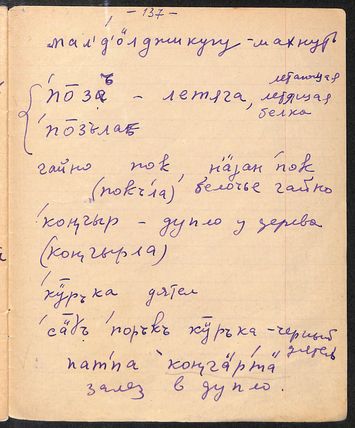 - 137 -
мал'д'öлджикугу - махнуть
по̄зъ - летяга, летающая
летящая
белка
по̄зъла
гайно пок, нäзан пок
(покчла) белочье гайно
коӊгыр - дупло у дерева
(коӊгырла)
кӯръка дятел
сäɣъ поръкъ кӯръка - черный
дятел
патпа коӊгäртӓ
залез в дупло.